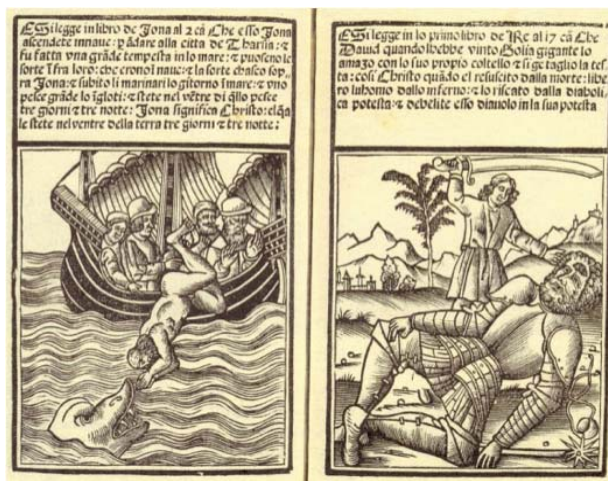 Si legge in libro de Jona al 2 cā Che esso Jona
ascendete innaue: ꝑ ādare alla citta de Tharsia: ⁊
fu fatta vna grāde tempesta in lo mare: ⁊ puoseno le
sorte īfra loro: che erono ī naue: ⁊ la sorte chasco sop
ra Jona: ⁊ subito li marinari lo gitorno ī mare: ⁊ vno
pesce grāde lo īgloti: ⁊ stete nel vētre di q̄llo pesce
tre giorni ⁊ tre notte: Jona significa Christo: el q̄
le stete nel ventre della terra tre giorni ⁊ tre notte:
Si legge in lo primo libro de Re al 17 cā Che
Dauid quando hebbe vinto Golia gigante lo
amazo con lo suo propio coltello ⁊ si ge taglio la tes
ta: cosi Christo quādo el resuscito dalla morte: libe
ro luhomo dallo inferno: ⁊ lo riscato dalla diaboli/
ca potesta: ⁊ debelite esso diauolo in la sua potesta